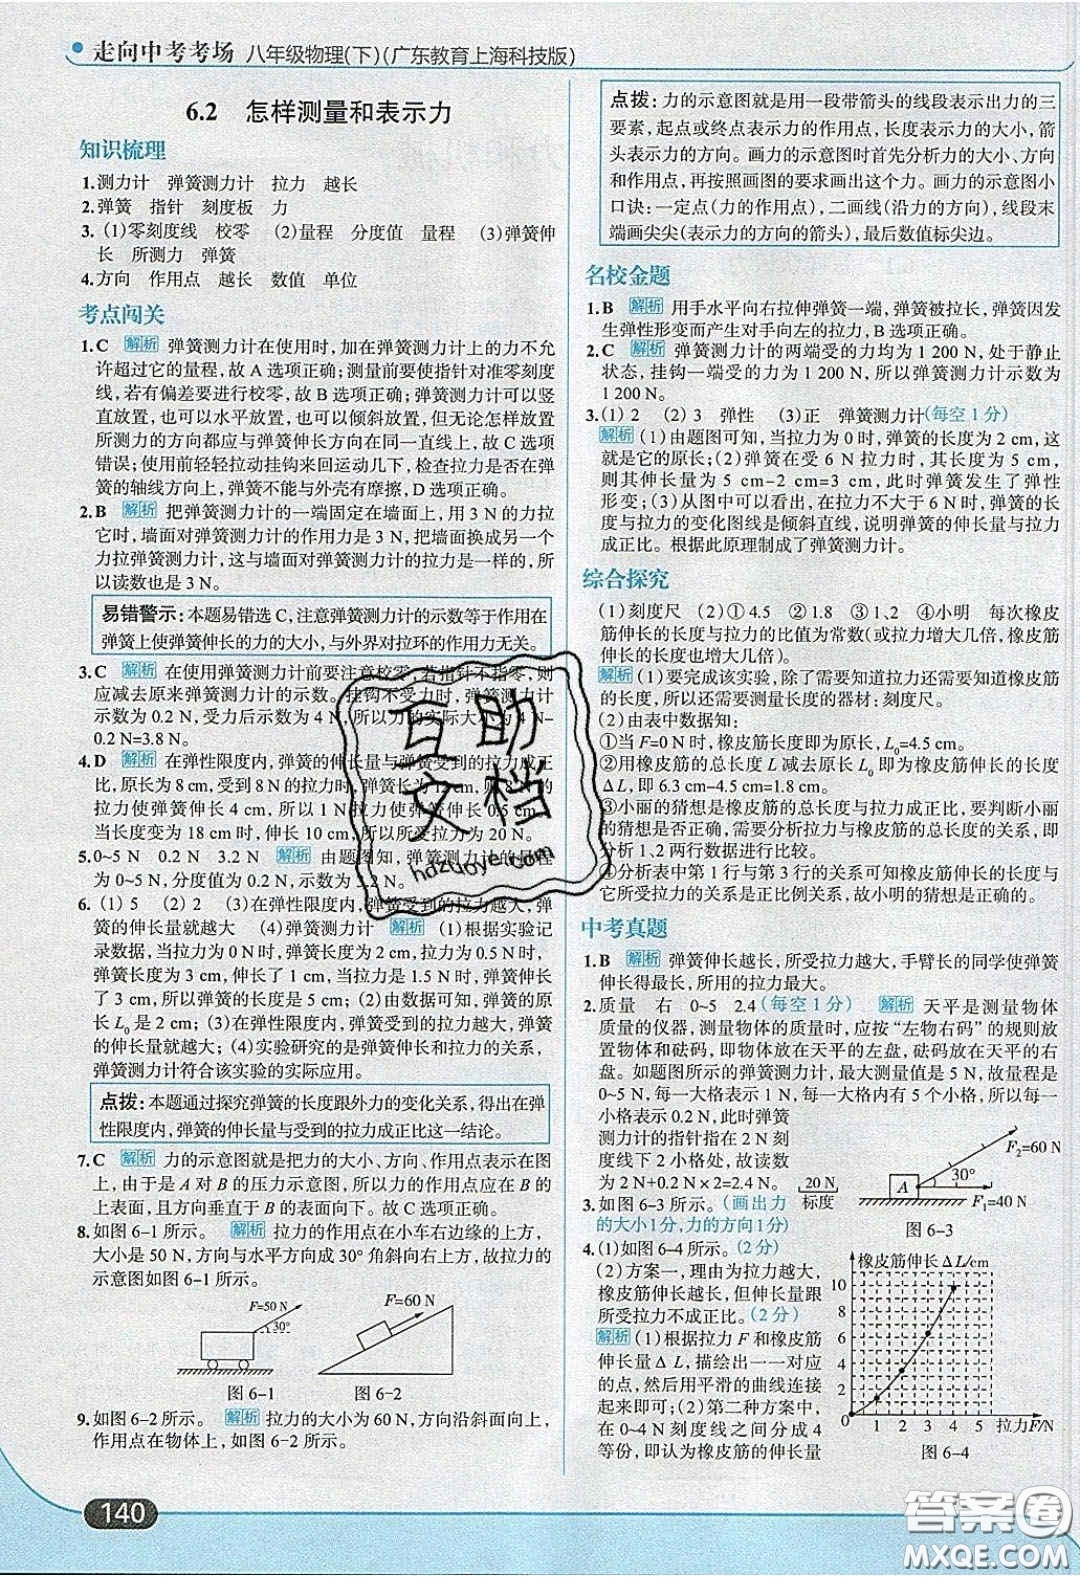 走向中考考场 八年级物理(下)(广东教育上海科技版)
6.2 怎样测量和表示力
知识梳理
1.测力计 弹簧测力计 拉力 越长
2.弹簧 指针 刻度板 力
3.(1)零刻度线 校零 (2)量程 分度值 量程 (3)弹簧伸
长 所测力 弹簧
4.方向 作用点 越长 数值 单位
考点闯关
1.C 解析 弹簧测力计在使用时,加在弹簧测力计上的力不允
许超过它的量程,故 A 选项正确;测量前要使指针对准零刻度
线,若有偏差要进行校零,故 B 选项正确;弹簧测力计可以竖
直放置,也可以水平放置,也可以倾斜放置,但无论怎样放置
所测力的方向都应与弹簧伸长方向在同一直线上,故 C 选项
错误;使用前轻轻拉动挂钩来回运动几下,检查拉力是否在弹
簧的轴线方向上,弹簧不能与外壳有摩擦,D 选项正确。
2.B 解析 把弹簧测力计的一端固定在墙面上,用 3 N 的力拉
它时,墙面对弹簧测力计的作用力是 3 N,把墙面换成另一个
力拉弹簧测力计,这与墙面对弹簧测力计的力是一样的,所
以读数也是 3 N。
易错警示:本题易错选 C,注意弹簧测力计的示数等于作用在
弹簧上使弹簧伸长的力的大小,与外界对拉环的作用力无关。
3.C 解析 在使用弹簧测力计前要注意校零,若指针不指零,则
应减去原来弹簧测力计的示数。挂钩不受力时,弹簧测力计
示数为 0.2 N,受力后示数为 4 N,所以力的实际大小为 4 N-
0.2 N=3.8 N。
4.D 解析 在弹性限度内,弹簧的伸长量与弹簧受到的拉力成正
比,原长为 8 cm,受到 8 N 的拉力时,弹簧长为 12 cm,即 8 N 的
拉力使弹簧伸长 4 cm,所以 1 N 拉力使弹簧伸长 0.5 cm,
当长度变为 18 cm 时,伸长 10 cm,所以所受拉力为 20 N。
5.0~5 N 0.2 N 3.2 N 解析 由题图知,弹簧测力计的量程
为 0~5 N,分度值为 0.2 N,示数为 3.2 N。
6.(1)5 (2)2 (3)在弹性限度内,弹簧受到的拉力越大,弹
簧的伸长量就越大 (4)弹簧测力计 解析 (1)根据实验记
录数据,当拉力为 0 N 时,弹簧长度为 2 cm,拉力为 0.5 N 时,
弹簧长度为 3 cm,伸长了 1 cm,当拉力是 1.5 N 时,弹簧伸长
了 3 cm,所以弹簧的长度是 5 cm;(2)由数据可知,弹簧的原
长 L₀ 是 2 cm;(3)在弹性限度内,弹簧受到的拉力越大,弹簧
的伸长量就越大;(4)实验研究的是弹簧伸长和拉力的关系,
弹簧测力计符合该实验的实际应用。
点拨:本题通过探究弹簧的长度跟外力的变化关系,得出在弹
性限度内,弹簧的伸长量与受到的拉力成正比这一结论。
7.C 解析 力的示意图就是把力的大小、方向、作用点表示在图
上,由于是 A 对 B 的压力示意图,所以力的作用点应在 B 的
上表面,且方向垂直于 B 的表面向下。故 C 选项正确。
8.如图 6-1 所示。 解析 拉力的作用点在小车右边缘的上方,
大小是 50 N,方向与水平方向成 30° 角斜向右上方,故拉力的
示意图如图 6-1 所示。
F=50 N
30°
图 6-1
F=60 N
图 6-2
9.如图 6-2 所示。 解析 拉力的大小为 60 N,方向沿斜面向上,
作用点在物体上,如图 6-2 所示。
140
点拨:力的示意图就是用一段带箭头的线段表示出力的三
要素,起点或终点表示力的作用点,长度表示力的大小,箭
头表示力的方向。画力的示意图时首先分析力的大小、方向
和作用点,再按照画图的要求画出这个力。画力的示意图小
口诀:一定点(力的作用点),二画线(沿力的方向),线段末
端画尖尖(表示力的方向的箭头),最后数值标尖边。
名校金题
1.B 解析 用手水平向右拉伸弹簧一端,弹簧被拉长,弹簧因发
生弹性形变而产生对手向左的拉力,B 选项正确。
2.C 解析 弹簧测力计的两端受的力均为 1 200 N,处于静止
状态,挂钩一端受的力为 1 200 N,所以弹簧测力计示数为
1 200 N。
3.(1)2 (2)3 弹性 (3)正 弹簧测力计(每空 1 分)
解析 (1)由题图可知,当拉力为 0 时,弹簧的长度为 2 cm,这
就是它的原长;(2)弹簧在受 6 N 拉力时,其长度为 5 cm,
则其伸长量为 5 cm-2 cm=3 cm,此时弹簧发生了弹性
形变;(3)从图中可以看出,在拉力不大于 6 N 时,弹簧的长
度与拉力的变化图线是倾斜直线,说明弹簧的伸长量与拉力
成正比。根据此原理制成了弹簧测力计。
综合探究
(1)刻度尺 (2)①4.5 ②1.8 ③1、2 ④小明 每次橡皮
筋伸长的长度与拉力的比值为常数(或拉力增大几倍,橡皮筋
伸长的长度也增大几倍)。
解析 (1)要完成该实验,除了需要知道拉力还需要知道橡皮筋
的长度,所以还需要测量长度的器材:刻度尺。
(2)由表中数据知:
①当 F=0 N 时,橡皮筋长度即为原长,L₀=4.5 cm。
②用橡皮筋的总长度 L 减去原长 L₀ 即为橡皮筋伸长的长度
ΔL,即 6.3 cm-4.5 cm=1.8 cm。
③小丽的猜想是橡皮筋的总长度与拉力成正比,要判断小丽
的猜想是否正确,需要分析拉力与橡皮筋的总长度的关系,即
分析 1、2 两行数据进行比较。
④分析表中第 1 行与第 3 行的关系可知橡皮筋伸长的长度与
它所受拉力的关系是正比例关系,故小明的猜想是正确的。
中考真题
1.B 解析 弹簧伸长越长,所受拉力越大,手臂长的同学使弹簧
伸得最长,所用的拉力最大。
2.质量 右 0~5 2.4(每空 1 分) 解析 天平是测量物体
质量的仪器,测量物体的质量时,应按“左物右码”的规则放
置物体和砝码,即物体放在天平的左盘,砝码放在天平的右
盘。如题图所示的弹簧测力计,最大测量值是 5 N,故量程是
0~5 N,每一大格表示 1 N,每一大格内有 5 个小格,所以每一
小格表示 0.2 N,此时弹簧
测力计的指针指在 2 N 刻
度线下 2 小格处,故读数
为 2 N+0.2 N×2=2.4 N。
3.如图 6-3 所示。(画出力
的大小 1 分,力的方向 1 分)
20 N
标度
A
30°
F₂=60 N
F₁=40 N
图 6-3
4.(1)如图 6-4 所示。(2 分)
(2)方案一,理由为拉力越大,
橡皮筋伸长越长,但伸长量跟
所受拉力不成正比。(2 分)
解析 (1)根据拉力 F 和橡皮筋
伸长量 ΔL,描绘出一一对应
的点,然后用平滑的曲线连接
起来即可;(2)第二种方案中,
在 0~4 N 刻度线之间分成 4
等份,即认为橡皮筋的伸长量
橡皮筋伸长 ΔL/cm
10
8
6
4
2
0 1 2 3 4 5 拉力F/N
图 6-4
互助
文档
hdzuoye.com
答案圈
MXQE.COM